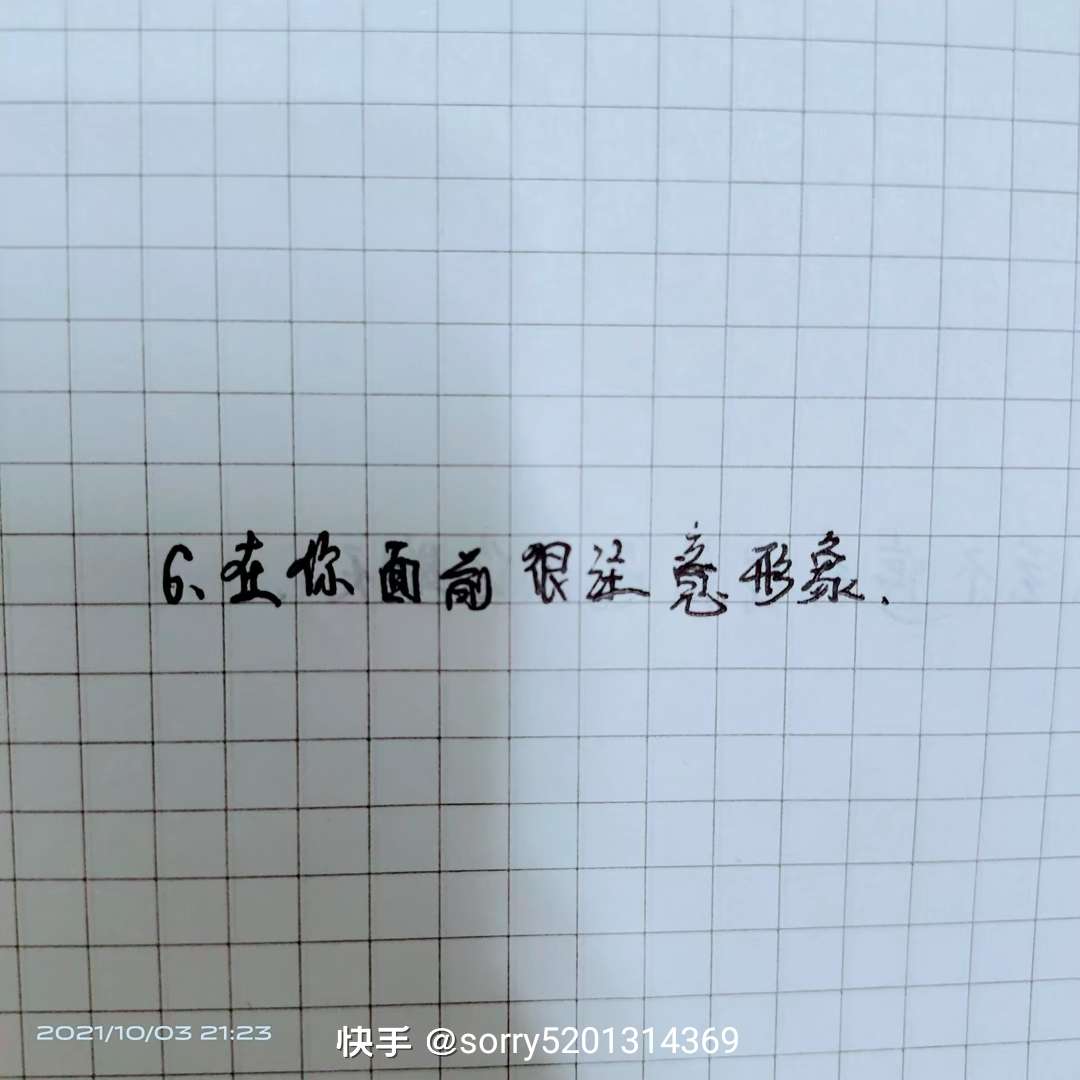 6、在你面前很注意形象.
2021/10/03 21:23
快手 @sorry5201314369